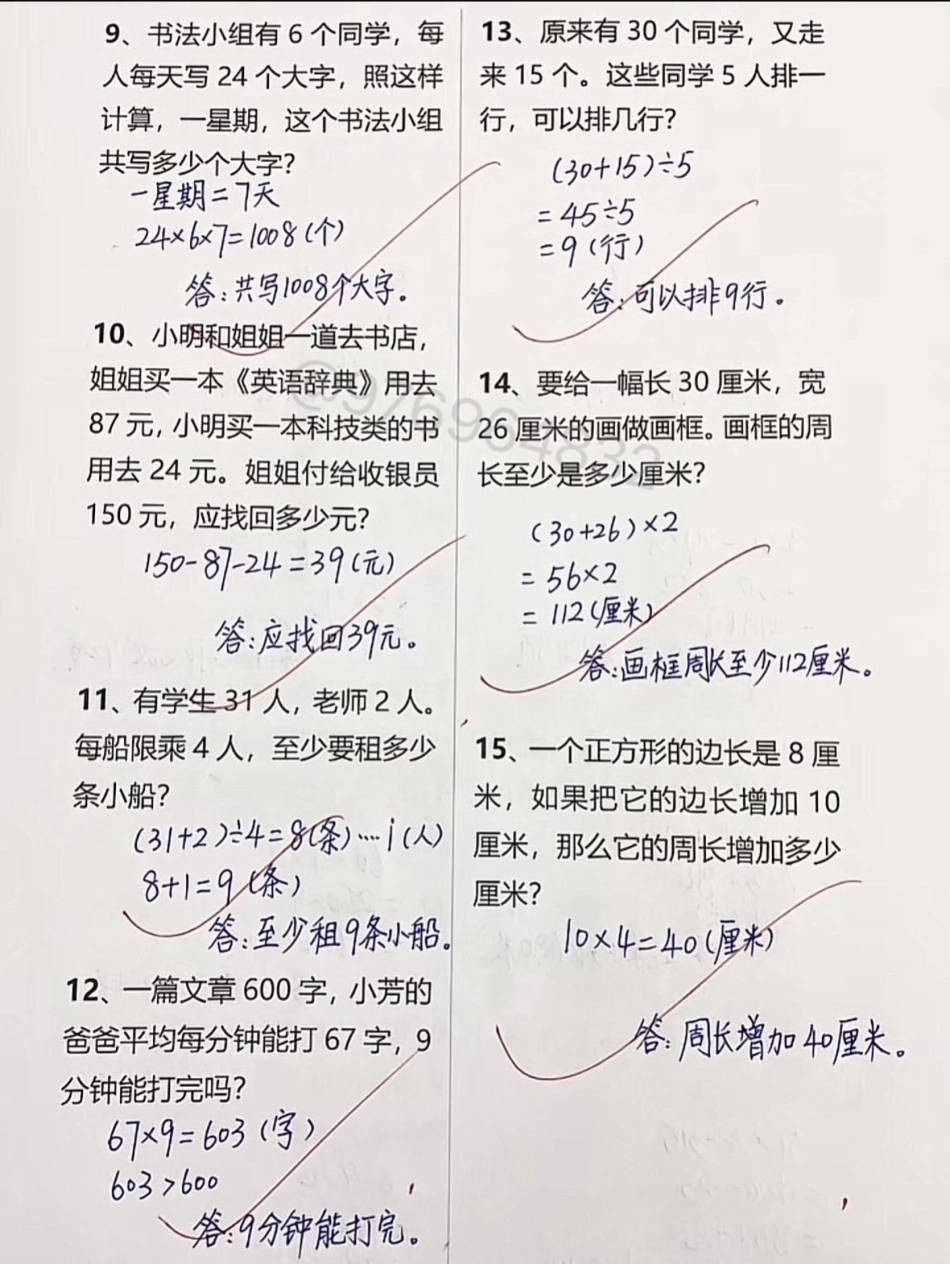 9、书法小组有 6 个同学，每
人每天写 24 个大字，照这样
计算，一星期，这个书法小组
共写多少个大字？
一星期=7天
24×6×7=1008(个)
答：共写1008个大字。
10、小明和姐姐一道去书店，
姐姐买一本《英语辞典》用去
87 元，小明买一本科技类的书
用去 24 元。姐姐付给收银员
150 元，应找回多少元？
150-87-24=39(元)
答：应找回39元。
11、有学生 31 人，老师 2 人。
每船限乘 4 人，至少要租多少
条小船？
(31+2)÷4=8(条)····1(人)
8+1=9(条)
答：至少租9条小船。
12、一篇文章 600 字，小芳的
爸爸平均每分钟能打 67 字，9
分钟能打完吗？
67×9=603(字)
603>600
答：9分钟能打完。
13、原来有 30 个同学，又走
来 15 个。这些同学 5 人排一
行，可以排几行？
(30+15)÷5
=45÷5
=9(行)
答：可以排9行。
14、要给一幅长 30 厘米，宽
26 厘米的画做画框。画框的周
长至少是多少厘米？
(30+26)×2
=56×2
=112(厘米)
答：画框周长至少112厘米。
15、一个正方形的边长是 8 厘
米，如果把它的边长增加 10
厘米，那么它的周长增加多少
厘米？
10×4=40(厘米)
答：周长增加40厘米。
@976964832